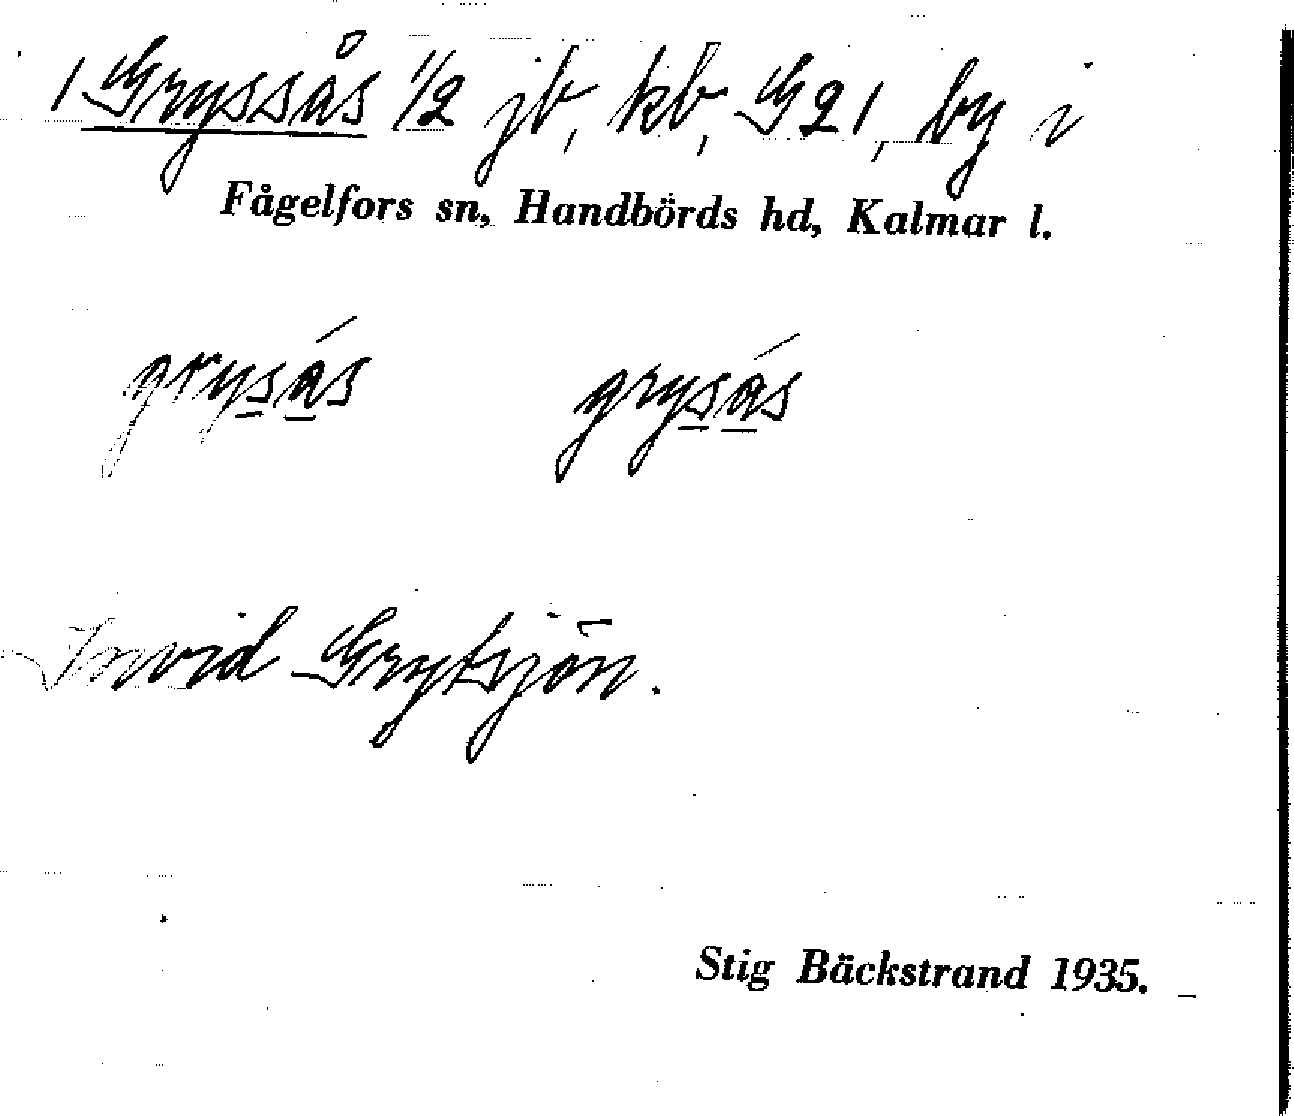 1 Gryssås 1/2 jb, kb, G21, by i
Fågelfors sn, Handbörds hd, Kalmar l.
grysás grysás
Invid Grytsjön.
Stig Bäckstrand 1935.